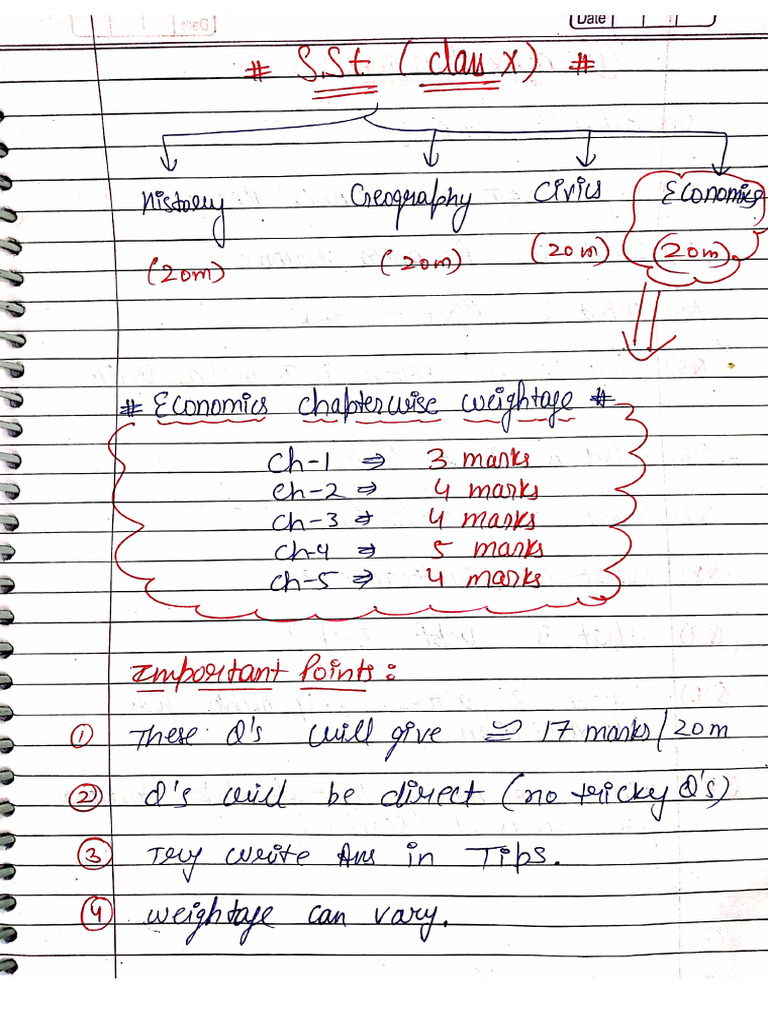 Date
# S.St (class x) #
History Geography Civics Economics
(20m) (20m) (20m) (20m)
# Economics chapterwise weightage #
Ch-1 ⇒ 3 marks
Ch-2 ⇒ 4 marks
Ch-3 ⇒ 4 marks
Ch-4 ⇒ 5 marks
Ch-5 ⇒ 4 marks
Important Points:
① These Q's will give ≃ 17 marks/20m
② Q's will be direct (no tricky Q's)
③ Try write Ans in Tips.
④ weightage can vary.